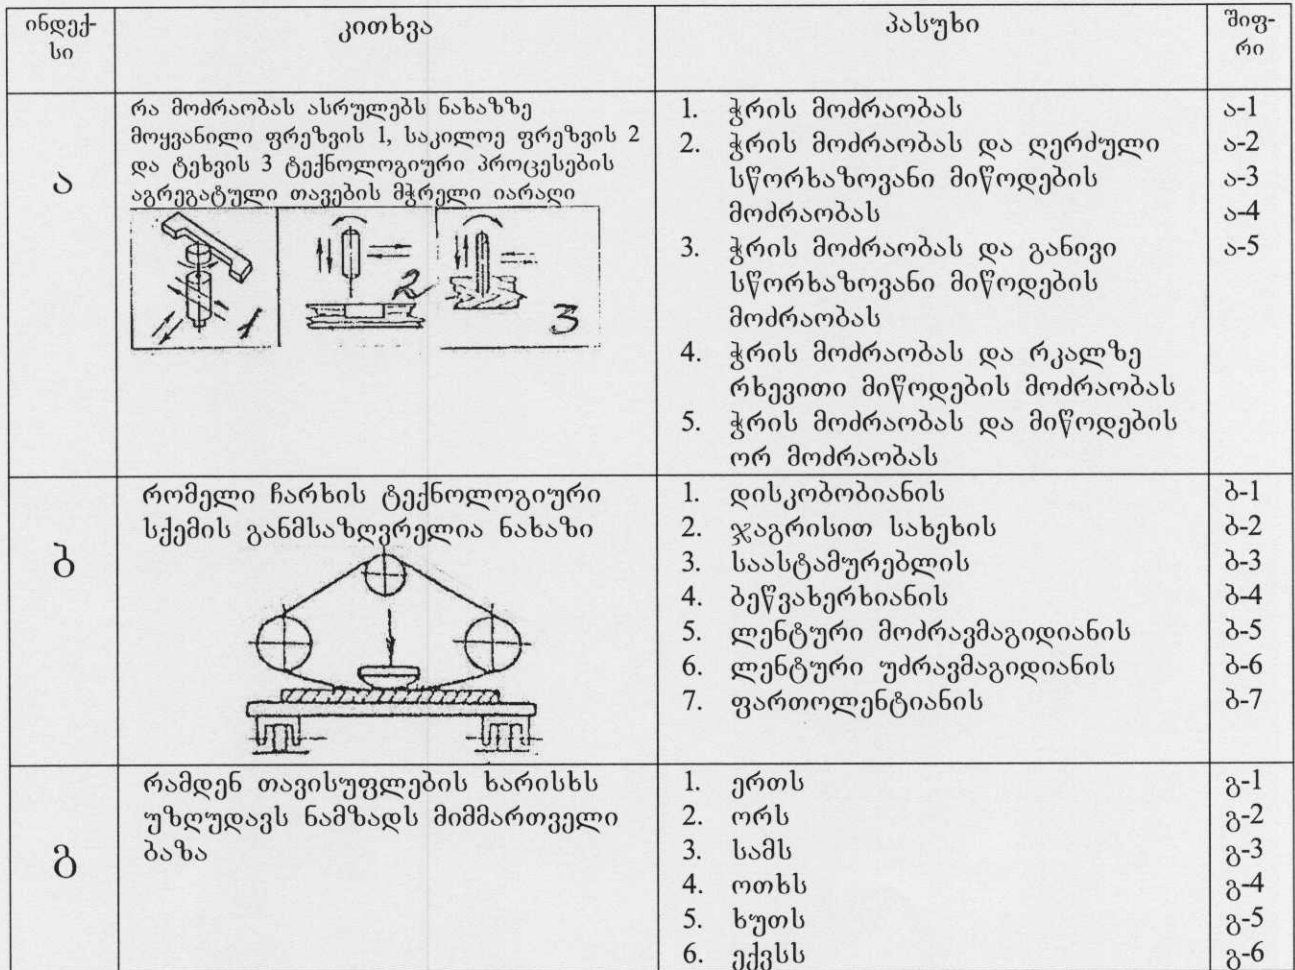 ინდექ-
სი
კითხვა
პასუხი
შიფ-
რი
ა
რა მოძრაობას ასრულებს ნახაზზე
მოყვანილი ფრეზვის 1, საკილოე ფრეზვის 2
და ტეხვის 3 ტექნოლოგიური პროცესების
აგრეგატული თავების მჭრელი იარაღი
1
2
3
1. ჭრის მოძრაობას
2. ჭრის მოძრაობას და ღერძული
სწორხაზოვანი მიწოდების
მოძრაობას
3. ჭრის მოძრაობას და განივი
სწორხაზოვანი მიწოდების
მოძრაობას
4. ჭრის მოძრაობას და რკალზე
რხევითი მიწოდების მოძრაობას
5. ჭრის მოძრაობას და მიწოდების
ორ მოძრაობას
ა-1
ა-2
ა-3
ა-4
ა-5
ბ
რომელი ჩარხის ტექნოლოგიური
სქემის განმსაზღვრელია ნახაზი
1. დისკობობიანის
2. ჯაგრისით სახეხის
3. საასტამურებლის
4. ბეწვახერხიანის
5. ლენტური მოძრავმაგიდიანის
6. ლენტური უძრავმაგიდიანის
7. ფართოლენტიანის
ბ-1
ბ-2
ბ-3
ბ-4
ბ-5
ბ-6
ბ-7
გ
რამდენ თავისუფლების ხარისხს
უზღუდავს ნამზადს მიმმართველი
ბაზა
1. ერთს
2. ორს
3. სამს
4. ოთხს
5. ხუთს
6. ექვსს
გ-1
გ-2
გ-3
გ-4
გ-5
გ-6